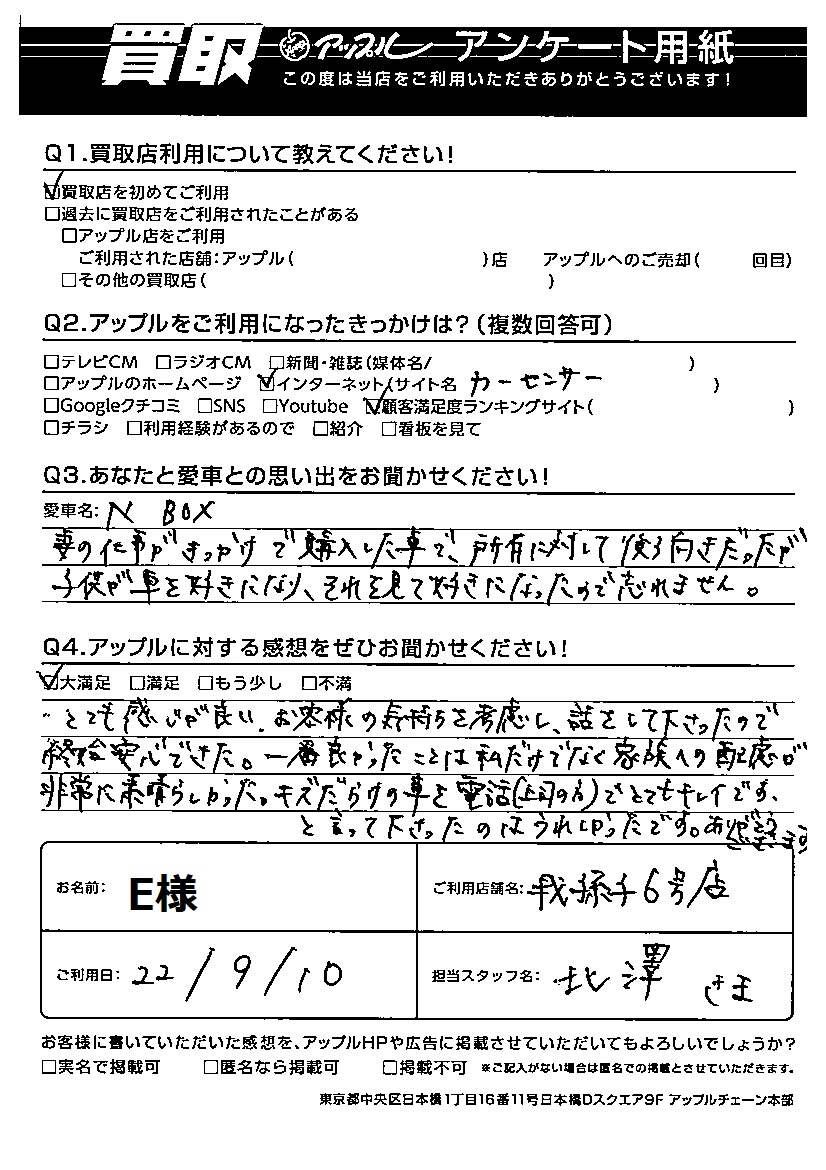 買取 アップル アンケート用紙
この度は当店をご利用いただきありがとうございます!
Q1.買取店利用について教えてください!
☑買取店を初めてご利用
□過去に買取店をご利用されたことがある
□アップル店をご利用
ご利用された店舗:アップル( )店 アップルへのご売却( 回目)
□その他の買取店( )
Q2.アップルをご利用になったきっかけは?(複数回答可)
□テレビCM □ラジオCM □新聞・雑誌(媒体名/ )
□アップルのホームページ ☑インターネット(サイト名 カーセンサー )
□Googleクチコミ □SNS □Youtube ☑顧客満足度ランキングサイト( )
□チラシ □利用経験があるので □紹介 □看板を見て
Q3.あなたと愛車との思い出をお聞かせください!
愛車名: N BOX
妻の仕事がきっかけで購入した車で、所有に対して後ろ向きだったが
子供が車を好きになり、それを見て好きになったので忘れません。
Q4.アップルに対する感想をぜひお聞かせください!
☑大満足 □満足 □もう少し □不満
・とても感じが良い、お客様の気持ちを考慮し、話をして下さったので
終始安心できた。一番良かったことは私だけでなく家族への配慮が
非常に素晴らしかった。キズだらけの車を電話(上司の方)でとてもキレイです、
と言って下さったのはうれしかったです。ありがとうございます
お名前: E様
ご利用店舗名: 我孫子6号店
ご利用日: 22/9/10
担当スタッフ名: 北澤さま
お客様に書いていただいた感想を、アップルHPや広告に掲載させていただいてもよろしいでしょうか?
□実名で掲載可 □匿名なら掲載可 □掲載不可 ※ご記入がない場合は匿名での掲載とさせていただきます。
東京都中央区日本橋1丁目16番11号日本橋Dスクエア9F アップルチェーン本部